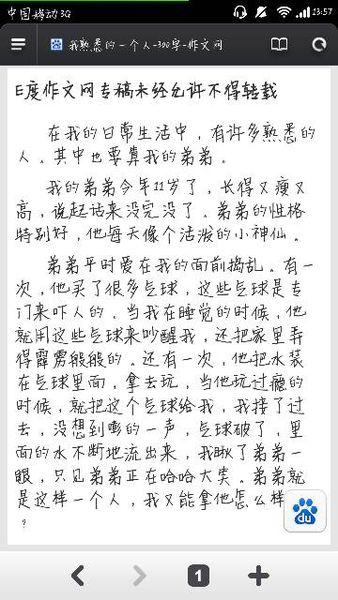 中国移动3G 13:57
我熟悉的一个人-300字-作文网
E度作文网专稿未经允许不得转载
在我的日常生活中，有许多熟悉的
人。其中也要算我的弟弟。
我的弟弟今年11岁了，长得又瘦又
高，说起话来没完没了。弟弟的性格
特别好，他每天像个活波的小神仙。
弟弟平时爱在我的面前捣乱。有一
次，他买了很多气球，这些气球是专
门来吓人的。当我在睡觉的时候，他
就用这些气球来吵醒我，还把家里弄
得霹雳般般的。还有一次，他把水装
在气球里面，拿去玩，当他玩过瘾的
时候，就把这个气球给我，我接了过
去，没想到嘭的一声，气球破了，里
面的水不断地流出来，我瞅了弟弟一
眼，只见弟弟正在哈哈大笑。弟弟就
是这样一个人，我又能拿他怎么样
?
du
1